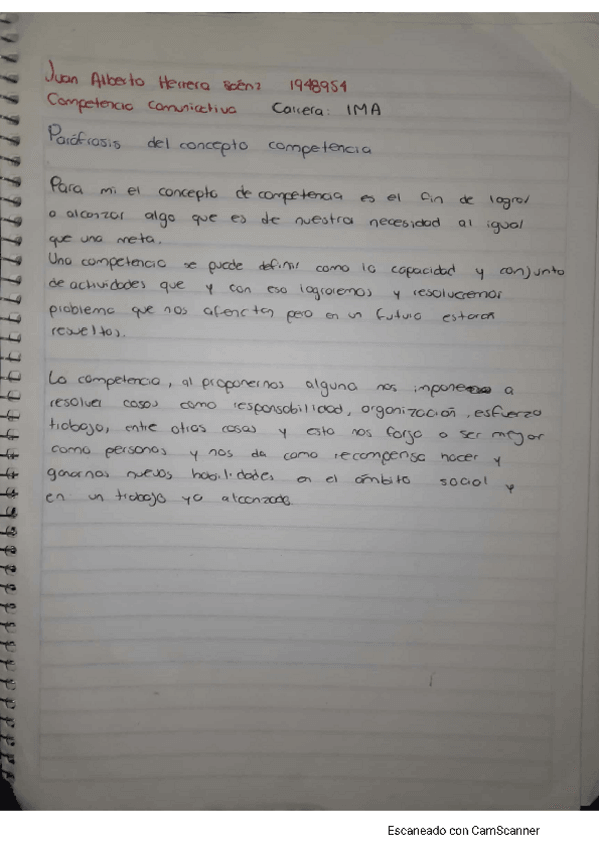 Juan Alberto Herrera Saénz 1948954
Competencia Comunicativa Carrera: IMA
Paráfrasis del concepto competencia
Para mi el concepto de competencia es el fin de lograr
o alcanzar algo que es de nuestra necesidad al igual
que una meta.
Una competencia se puede definir como la capacidad y conjunto
de actividades que y con eso lograremos y resolveremos
problema que nos afencten pero en un futuro estaran
resueltos.
La competencia, al proponernos alguna nos impone a
resolver cosas como responsabilidad, organización, esfuerzo
trabajo, entre otras cosas y esto nos forja a ser mejor
como personas y nos da como recompensa hacer y
ganarnos nuevos habilidades en el ámbito social y
en un trabajo ya alcanzado
Escaneado con CamScanner